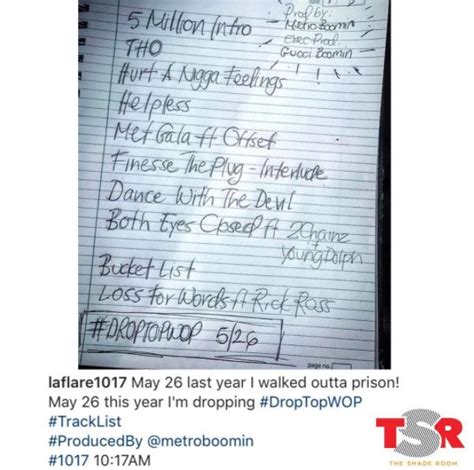 Prod by:
5 Million Intro Metro Boomin
THO Exec Prod.
Gucci Boomin
Hurt A Nigga Feelings
Helpless
Met Gala ft Offset
Finesse The Plug - Interlude
Dance With The Devil
Both Eyes Closed ft 2Chainz
+
Young Dolph
Bucket List
Loss for Words ft Rick Ross
#DROPTOPWOP 5/26
page no.
laflare1017 May 26 last year I walked outta prison!
May 26 this year I'm dropping #DropTopWOP
#TrackList
#ProducedBy @metroboomin
#1017 10:17AM
TSR
THE SHADE ROOM